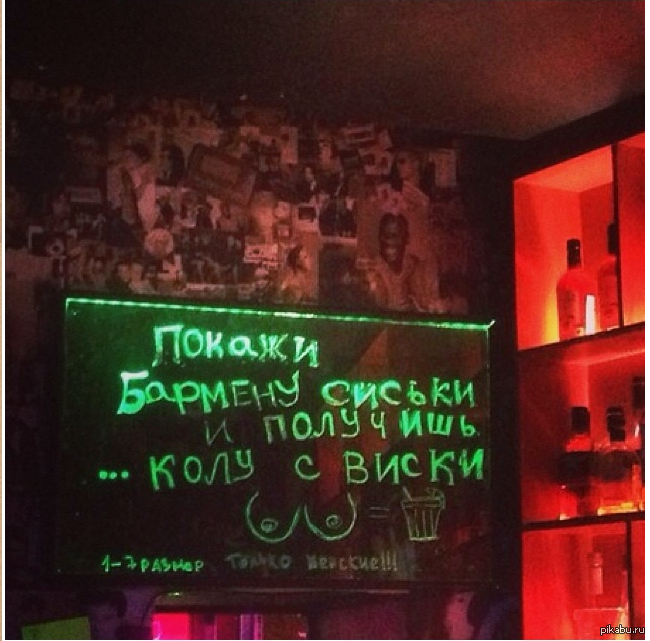 Покажи
Бармену сиськи
и получишь
... колу с виски
=
1-7 размер только женские!!!
pikabu.ru